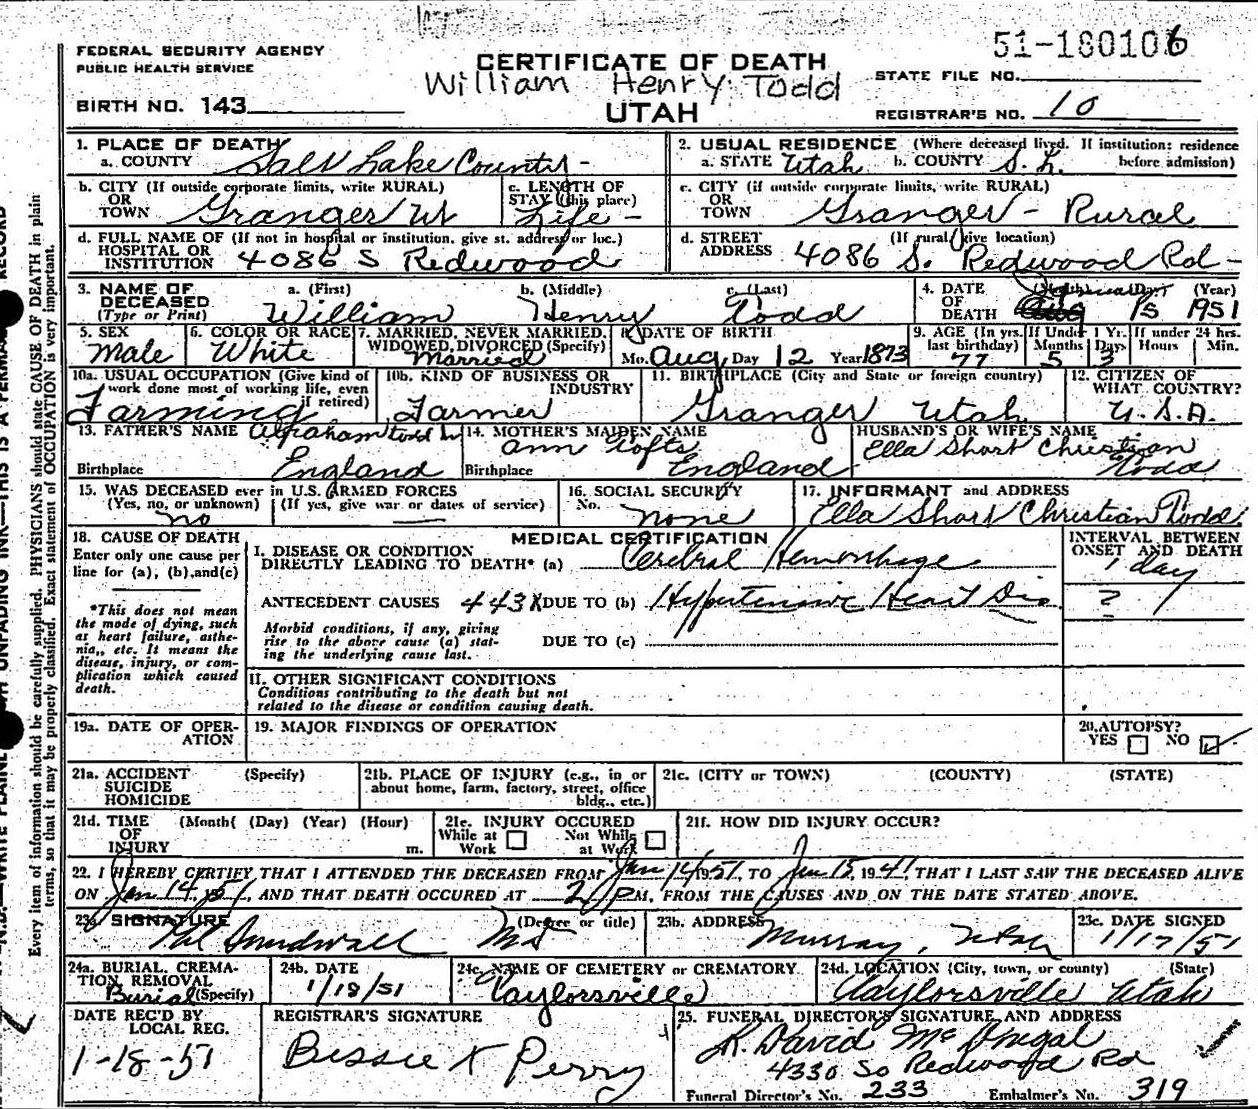 51-180106
FEDERAL SECURITY AGENCY
PUBLIC HEALTH SERVICE
CERTIFICATE OF DEATH
STATE FILE NO.
William Henry Todd
BIRTH NO. 143
UTAH
REGISTRAR'S NO. 10
1. PLACE OF DEATH
a. COUNTY Salt Lake County -
2. USUAL RESIDENCE (Where deceased lived. If institution: residence before admission)
a. STATE Utah b. COUNTY S. L.
b. CITY (If outside corporate limits, write RURAL)
OR
TOWN Granger Ut
c. LENGTH OF
STAY (this place)
Life -
c. CITY (if outside corporate limits, write RURAL)
OR
TOWN Granger - Rural
d. FULL NAME OF (If not in hospital or institution, give st. address or loc.)
HOSPITAL OR
INSTITUTION 4086 S Redwood
d. STREET (If rural, give location)
ADDRESS 4086 S. Redwood Rd -
3. NAME OF DECEASED
(Type or Print)
a. (First) b. (Middle) c. (Last)
William Henry Todd
4. DATE OF DEATH (Day) (Year)
15 1951
5. SEX
Male
6. COLOR OR RACE
White
7. MARRIED, NEVER MARRIED,
WIDOWED, DIVORCED (Specify)
Married
8. DATE OF BIRTH
Mo. Aug Day 12 Year 1873
9. AGE (In yrs. last birthday) 77
If Under 1 Yr. Months 5 Days 3
If under 24 hrs. Hours Min.
10a. USUAL OCCUPATION (Give kind of
work done most of working life, even
if retired)
Farming
10b. KIND OF BUSINESS OR
INDUSTRY
Farmer
11. BIRTHPLACE (City and State or foreign country)
Granger Utah
12. CITIZEN OF
WHAT COUNTRY?
U.S.A.
13. FATHER'S NAME Abraham Todd
Birthplace England
14. MOTHER'S MAIDEN NAME
Ann Tofts
Birthplace England
HUSBAND'S OR WIFE'S NAME
Ella Short Christian
Todd
15. WAS DECEASED ever in U.S. ARMED FORCES
(Yes, no, or unknown) (If yes, give war or dates of service)
no —
16. SOCIAL SECURITY
No. none
17. INFORMANT and ADDRESS
Ella Short Christian Todd
18. CAUSE OF DEATH
Enter only one cause per
line for (a), (b), and (c)
*This does not mean
the mode of dying, such
as heart failure, asthe-
nia,, etc. It means the
disease, injury, or com-
plication which caused
death.
MEDICAL CERTIFICATION
I. DISEASE OR CONDITION
DIRECTLY LEADING TO DEATH* (a) Cerebral Hemorrhage
ANTECEDENT CAUSES 443X DUE TO (b) Hypertensive Heart Dis.
Morbid conditions, if any, giving
rise to the above cause (a) stat-
ing the underlying cause last.
DUE TO (c)
INTERVAL BETWEEN
ONSET AND DEATH
1 day
?
II. OTHER SIGNIFICANT CONDITIONS
Conditions contributing to the death but not
related to the disease or condition causing death.
19a. DATE OF OPER-
ATION
19. MAJOR FINDINGS OF OPERATION
20. AUTOPSY?
YES NO
21a. ACCIDENT (Specify)
SUICIDE
HOMICIDE
21b. PLACE OF INJURY (e.g., in or
about home, farm, factory, street, office
bldg., etc.)
21c. (CITY or TOWN) (COUNTY) (STATE)
21d. TIME (Month) (Day) (Year) (Hour)
OF
INJURY m.
21e. INJURY OCCURED
While at Work Not While at Work
21f. HOW DID INJURY OCCUR?
22. I HEREBY CERTIFY THAT I ATTENDED THE DECEASED FROM Jan 14, 1951, TO Jan 15, 1941 THAT I LAST SAW THE DECEASED ALIVE
ON Jan 14, 1951, AND THAT DEATH OCCURED AT 2 PM, FROM THE CAUSES AND ON THE DATE STATED ABOVE.
23a. SIGNATURE (Degree or title)
MD
23b. ADDRESS
Murray, Utah
23c. DATE SIGNED
1/17/51
24a. BURIAL, CREMA-
TION REMOVAL
Burial (Specify)
24b. DATE
1/18/51
24c. NAME OF CEMETERY or CREMATORY
Taylorsville
24d. LOCATION (City, town, or county) (State)
Taylorsville Utah
DATE REC'D BY
LOCAL REG.
1-18-51
REGISTRAR'S SIGNATURE
Bessie K Perry
25. FUNERAL DIRECTOR'S SIGNATURE AND ADDRESS
David
4330 So Redwood Rd
Funeral Director's No. 233 Embalmer's No. 319
Every item of information should be carefully supplied. PHYSICIANS should state CAUSE OF DEATH in plain
terms, so that it may be properly classified. Exact statement of OCCUPATION is very important.
UNFADING INK—THIS IS A
RECORD